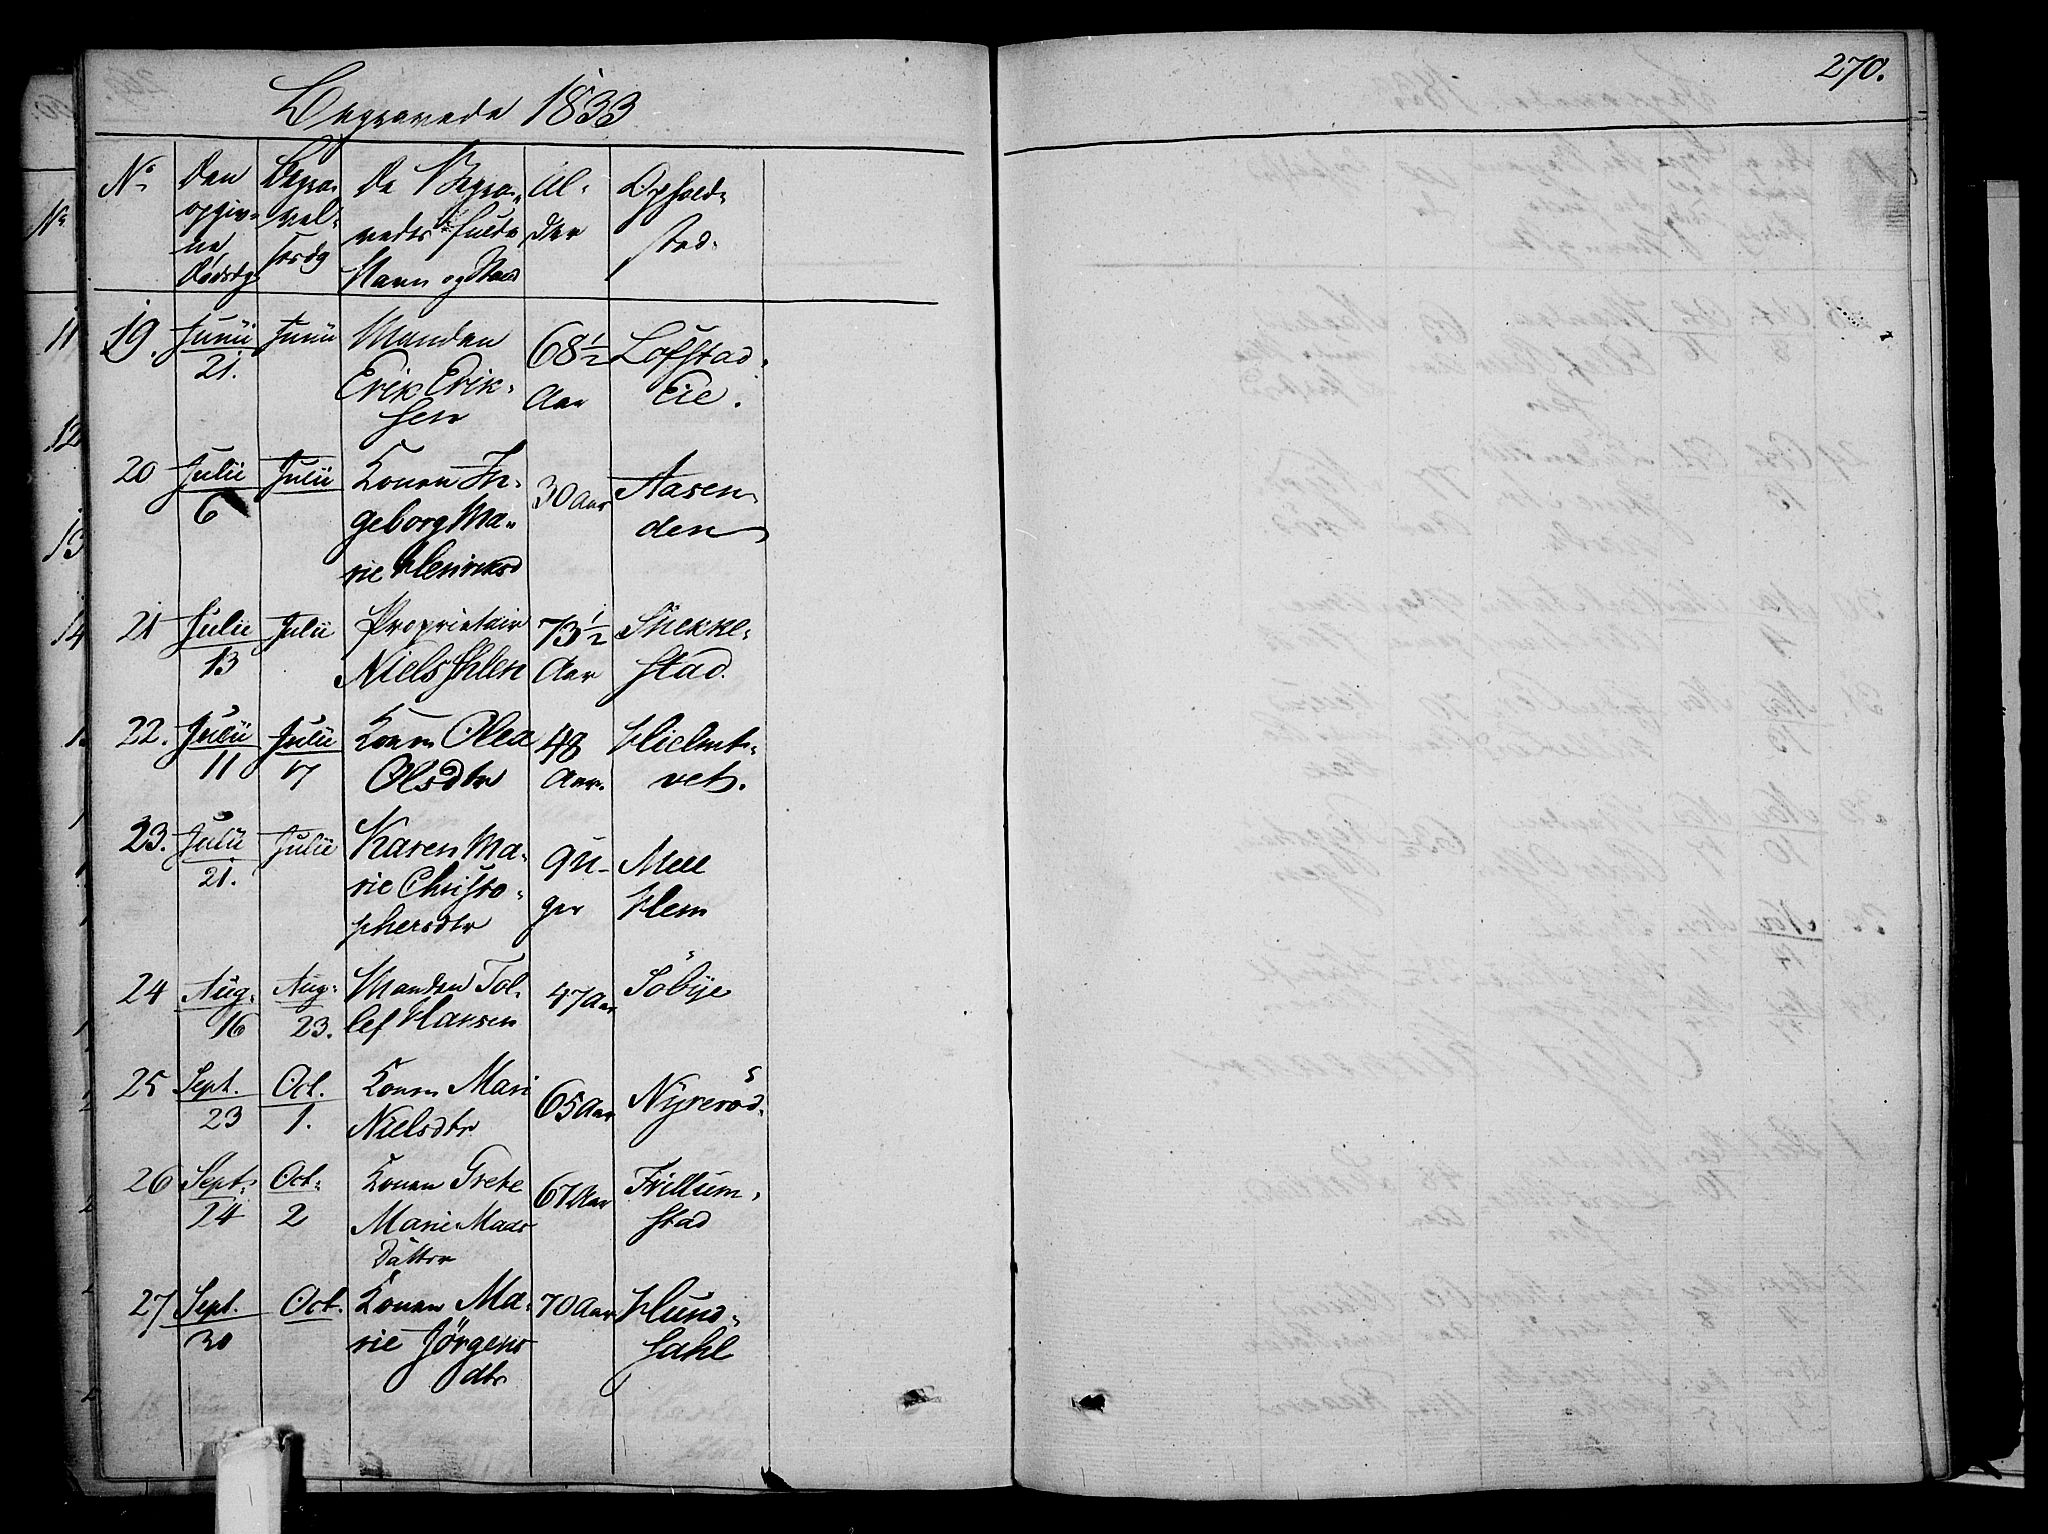 270.
Begravede 1833
No Den opgivne Dødsdg Begravelsesdg De Begravedes fulde Navn og Stand Alder Opholdsted
19. Junii 21. Junii Manden Erik Eriksen 68 1/2 Aar Lofstad Eie.
20 Julii 6 Julii Konen Ingeborg Marie Henriksd 30 Aar Aasenden
21 Julii 13 Julii Proprietair Niels Ihlen 73 1/2 Aar Skekkestad.
22. Julii 11 Julii 17 Konen Olea Olsdtr 48 Aar. Hielmtvet.
23. Julii 21. Julii Karen Marie Christophersdtr 9 Uger Mell Hem
24 Aug. 16 Aug. 23. Manden Tollef Hansen 47 Aar Söbye
25 Sept. 23 Oct. 1. Konen Mari Nielsdtr 65 Aar Nyreröd.
26 Sept. 24 Oct. 2 Konen Grete Marie Mads Datter 67 Aar Frillumstad
27 Sept. 30 Oct. Konen Marie Jörgensdtr 70 Aar Hundsahl
11
12
13
14